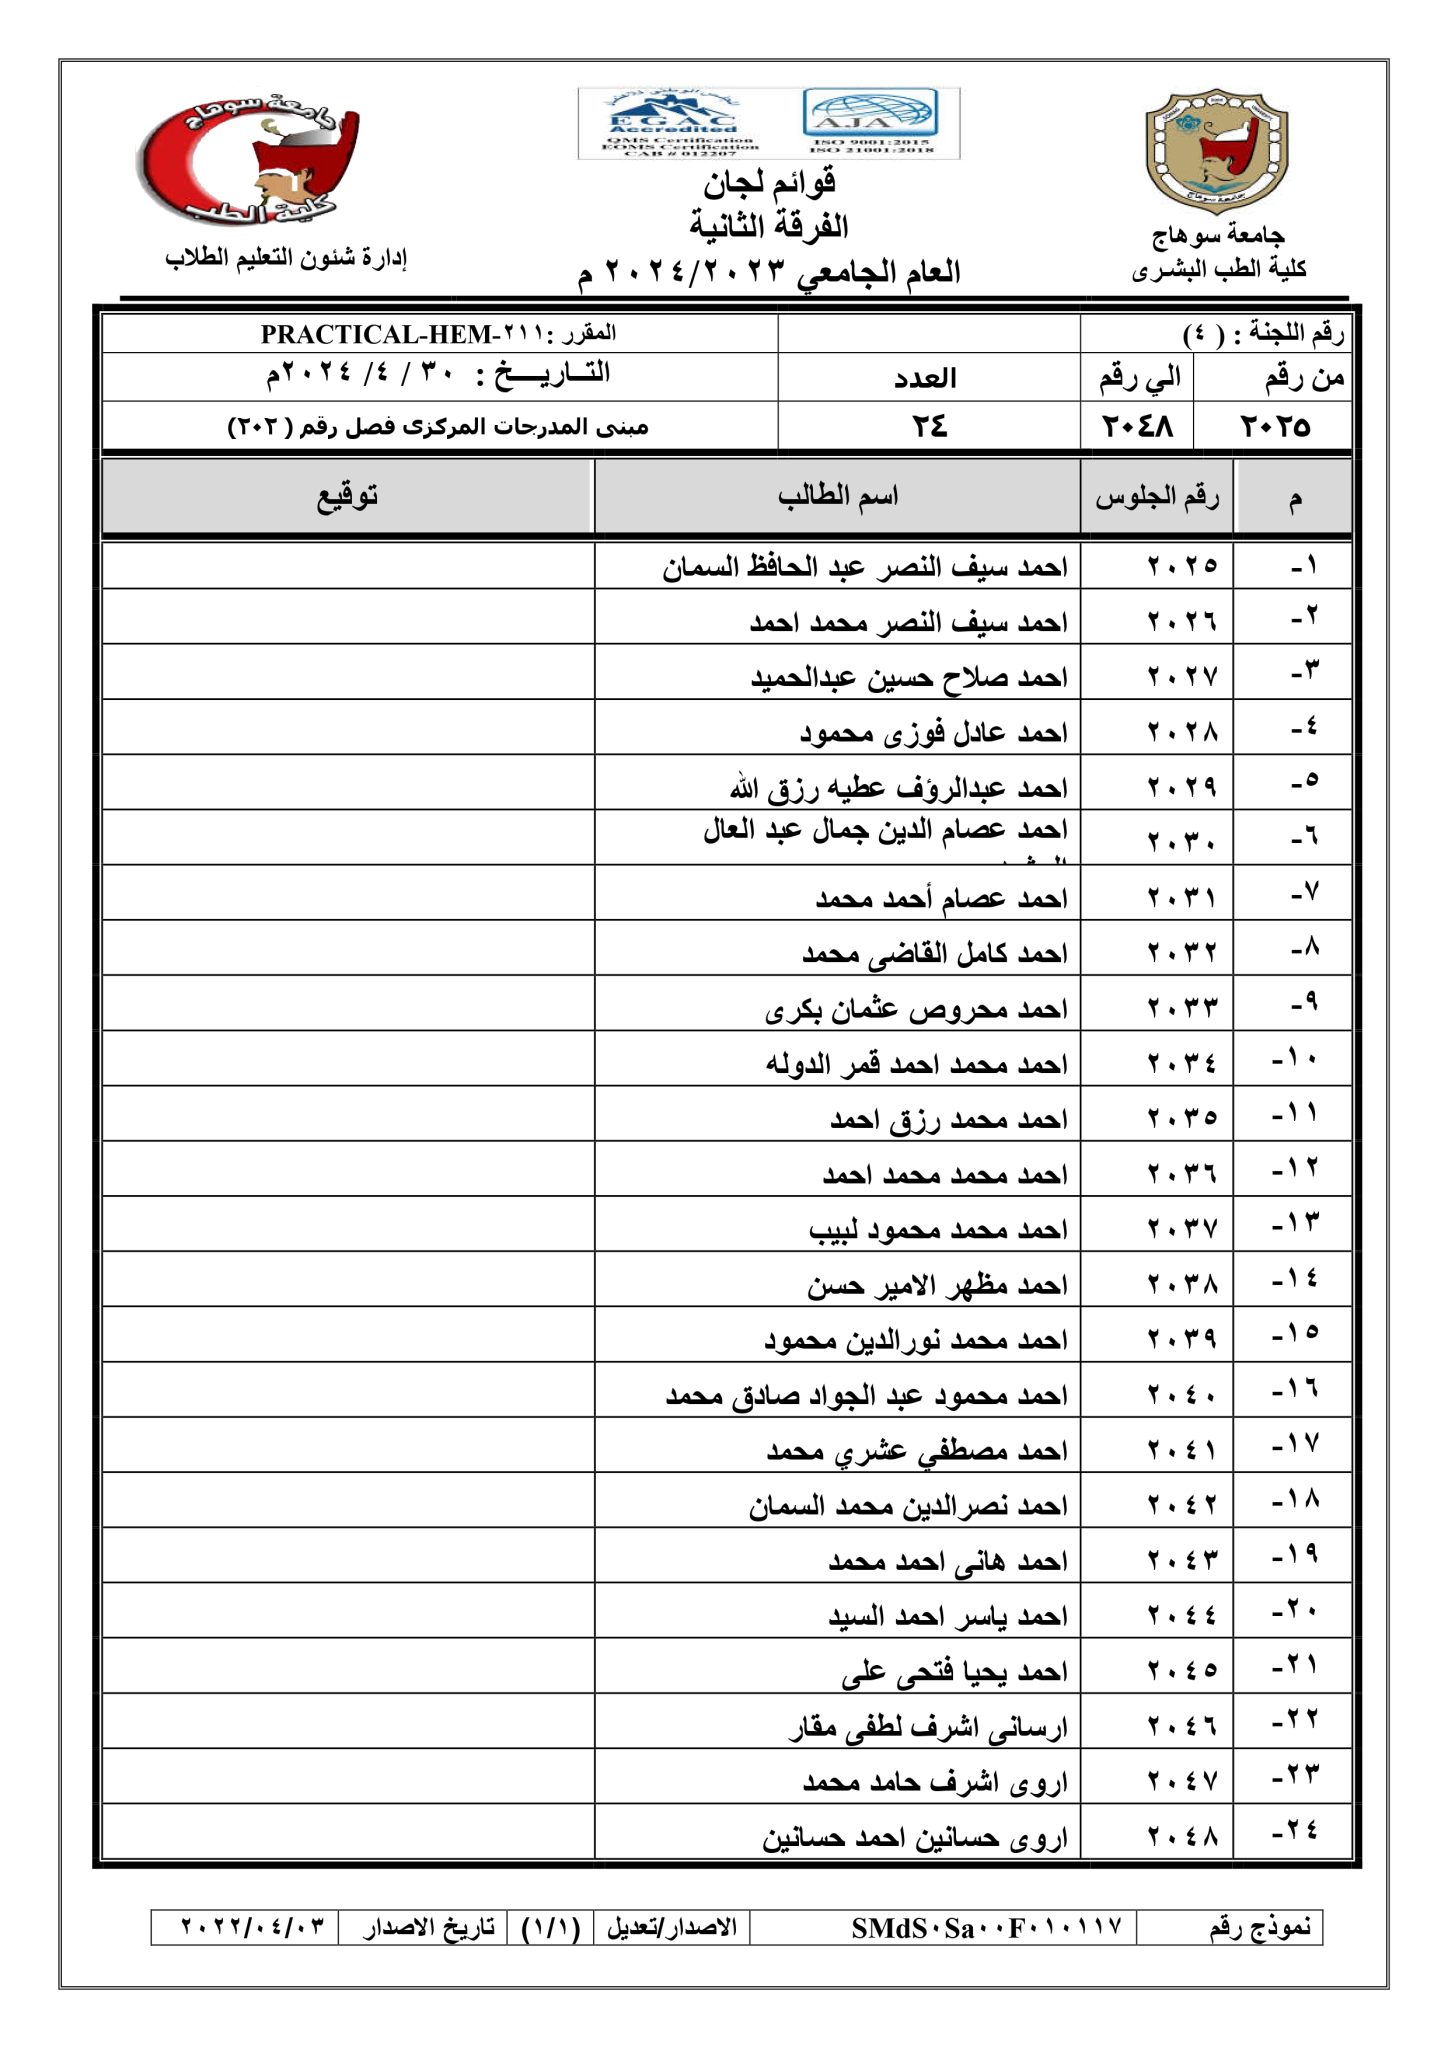 جامعة سوهاج
كلية الطب
EGAC
Accredited
QMS Certification
EOMS Certification
CAB # 012207
AJA
ISO 9001:2015
ISO 21001:2018
جامعة سوهاج
جامعة سوهاج
كلية الطب البشرى
قوائم لجان
الفرقة الثانية
العام الجامعي ٢٠٢٤/٢٠٢٣ م
إدارة شئون التعليم الطلاب
رقم اللجنة : ( ٤) المقرر :PRACTICAL-HEM-٢١١
من رقم الي رقم العدد التــاريـــخ : ٣٠ / ٤/ ٢٠٢٤م
٢٠٢٥ ٢٠٤٨ ٢٤ مبنى المدرجات المركزى فصل رقم ( ٢٠٢)
م رقم الجلوس اسم الطالب توقيع
١- ٢٠٢٥ احمد سيف النصر عبد الحافظ السمان
٢- ٢٠٢٦ احمد سيف النصر محمد احمد
٣- ٢٠٢٧ احمد صلاح حسين عبدالحميد
٤- ٢٠٢٨ احمد عادل فوزى محمود
٥- ٢٠٢٩ احمد عبدالرؤف عطيه رزق الله
٦- ٢٠٣٠ احمد عصام الدين جمال عبد العال
٧- ٢٠٣١ احمد عصام أحمد محمد
٨- ٢٠٣٢ احمد كامل القاضى محمد
٩- ٢٠٣٣ احمد محروص عثمان بكرى
١٠- ٢٠٣٤ احمد محمد احمد قمر الدوله
١١- ٢٠٣٥ احمد محمد رزق احمد
١٢- ٢٠٣٦ احمد محمد محمد احمد
١٣- ٢٠٣٧ احمد محمد محمود لبيب
١٤- ٢٠٣٨ احمد مظهر الامير حسن
١٥- ٢٠٣٩ احمد محمد نورالدين محمود
١٦- ٢٠٤٠ احمد محمود عبد الجواد صادق محمد
١٧- ٢٠٤١ احمد مصطفي عشري محمد
١٨- ٢٠٤٢ احمد نصرالدين محمد السمان
١٩- ٢٠٤٣ احمد هانى احمد محمد
٢٠- ٢٠٤٤ احمد ياسر احمد السيد
٢١- ٢٠٤٥ احمد يحيا فتحى على
٢٢- ٢٠٤٦ ارسانى اشرف لطفى مقار
٢٣- ٢٠٤٧ اروى اشرف حامد محمد
٢٤- ٢٠٤٨ اروى حسانين احمد حسانين
نموذج رقم SMdS٠Sa٠٠F٠١٠١١٧ الاصدار/تعديل (١/١) تاريخ الاصدار ٢٠٢٢/٠٤/٠٣